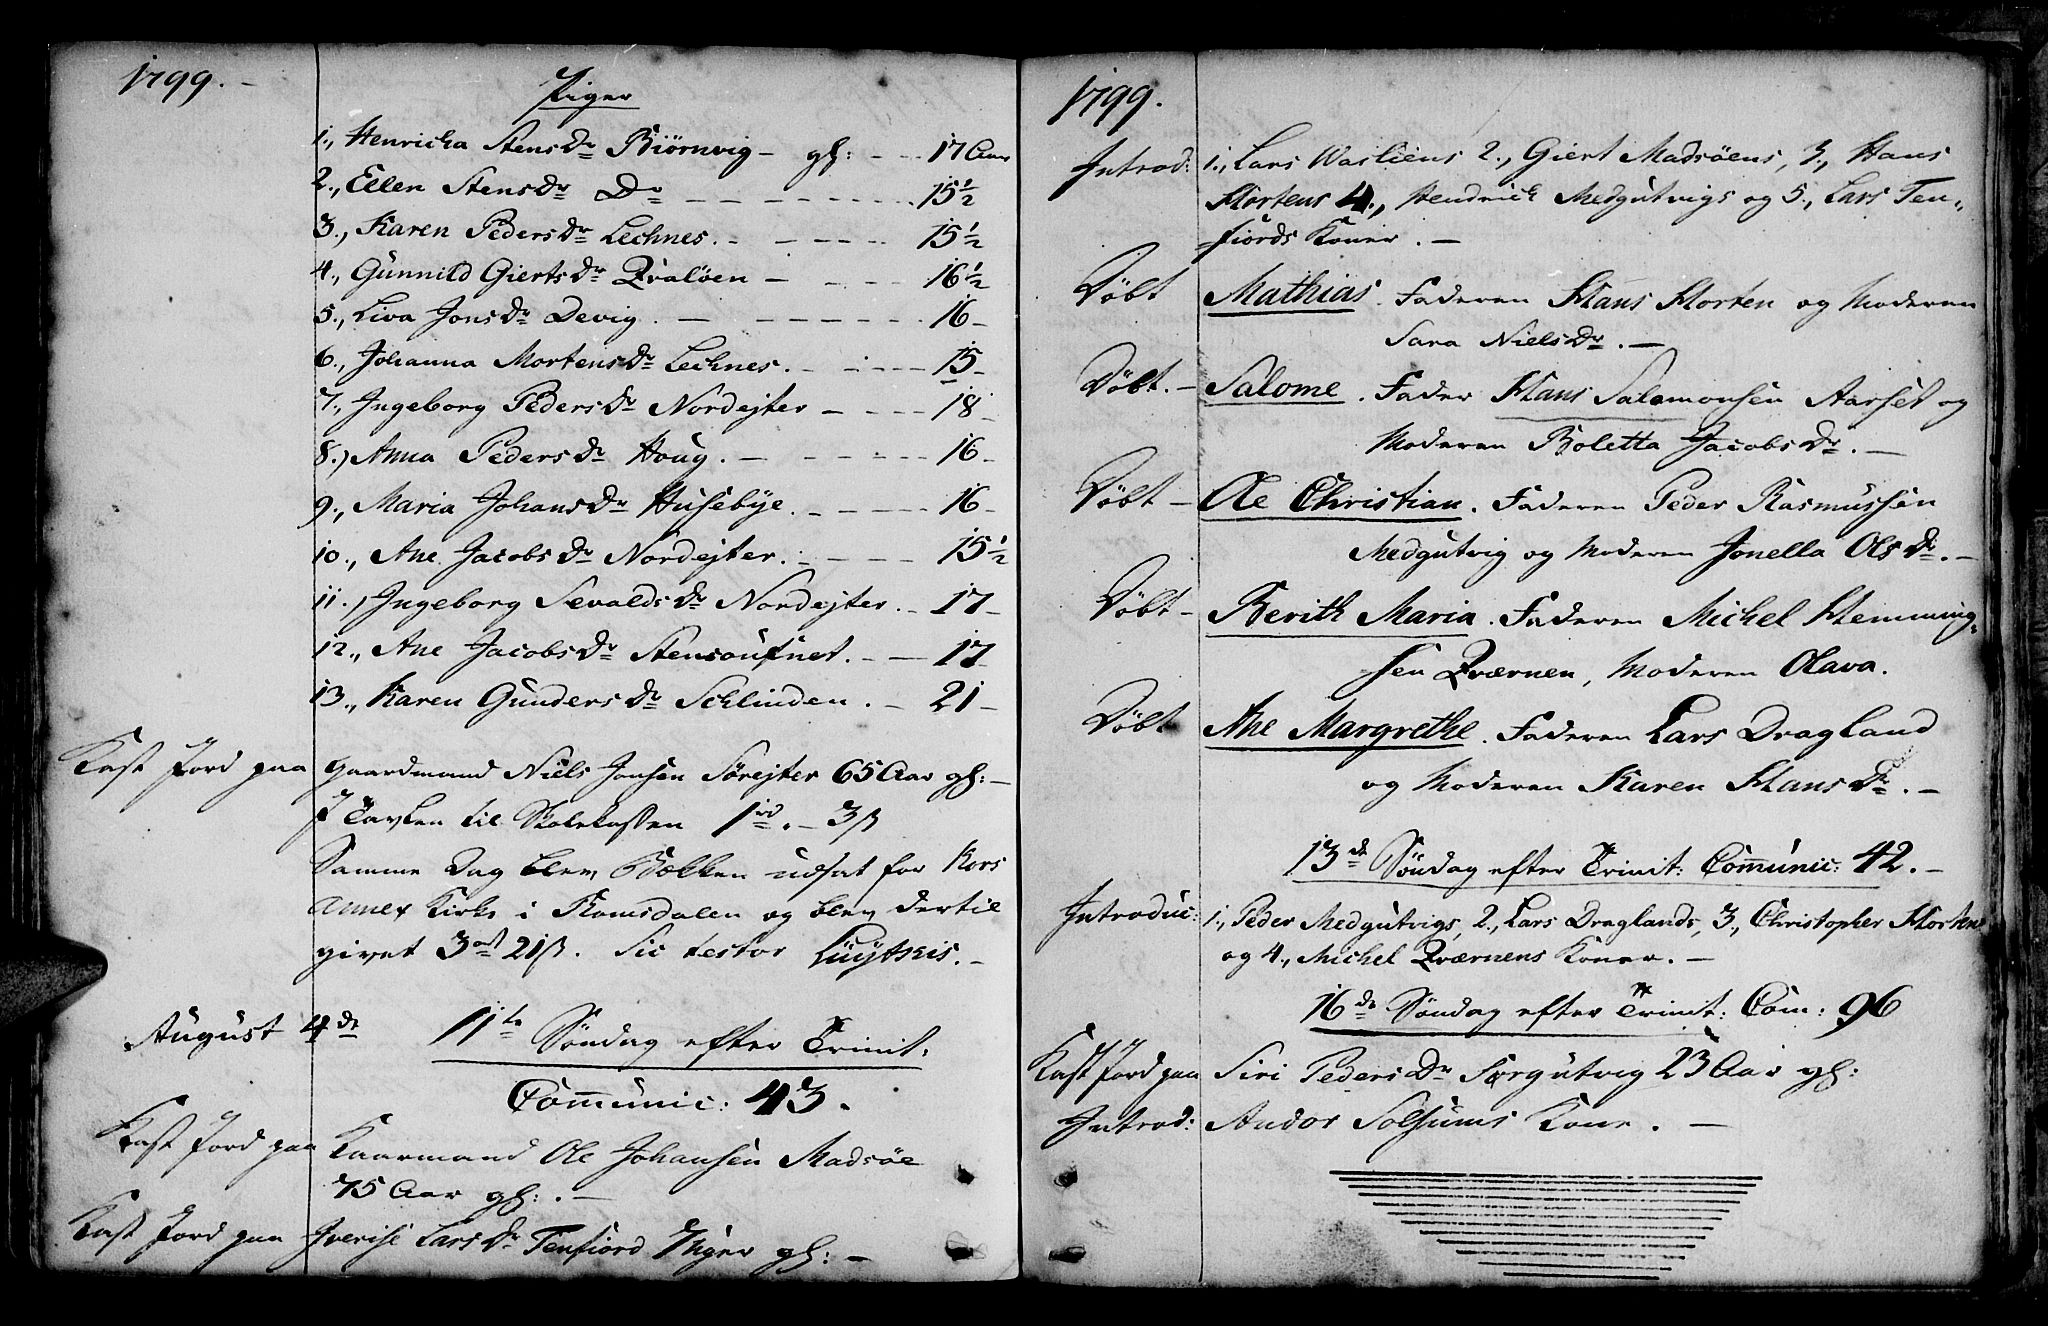 1799.
Piger
1., Henricha Stens Dr Biörnvig - gl: - 17 Aar
2., Ellen Stens Dr Do - 15 1/2
3., Karen Peders Dr Lechnes. - 15 1/2
4., Gunnild Gierts Dr Qvalöen - 16 1/2
5., Liva Jons Dr Devig. - 16 -
6., Johanna Mortens Dr Lechnes. - 15 -
7., Ingeborg Peders Dr Nordejter - 18
8., Anna Peders Dr Houg. - 16 -
9., Maria Johans Dr Husebye. - 16 -
10., Ane Jacobs Dr Nordejter. - 15 1/2
11., Ingeborg Sevalds Dr Nordejter. - 17 -
12., Ane Jacobs Dr Stensoufnet. - 17
13., Karen Gunders Dr Schlinden. - 21 -
Kast Jord paa Gaardmand Niels Jonsen Sörejter 65 Aar gl: -
I Tavlen til Skolekassen 1 - 3 ß
Samme Dag blev Bekken udsat for Kors
Annex Kirke i Romsdalen og blev dertil
givet 3 ort 21 ß. Sic testor
August 4de 11te Söndag efter Trinit.
Communic: 43.
Kast Jord paa Kaarmand Ole Johansen Madsöe
75 Aar gl: . -
Kast Jord paa Lars Dr Tenfiord gl: -
1799.
Introd: 1., Lars Wasliens 2., Giert Madsöens, 3., Hans
Hortens 4., Hendrich Medgutvigs og 5., Lars Ten=
=fiords Koner. -
Döbt Mathias. Faderen Hans Horten og Moderen
Sara Niels Dr. -
Döbt. - Salome. Fader Hans Salomonsen Aarset og
Moderen Boletta Jacobs Dr. -
Döbt - Ole Christian. Faderen Peder Rasmussen
Medgutvig og Moderen Jonella Ols Dr. -
Döbt - Berith Maria. Faderen Michel Hemming=
sen Qværnen, Moderen Olava.
Döbt Ane Margrethe. Faderen Lars Dragland
og Moderen Karen Hans Dr. -
13de Söndag efter Trinit: Communic: 42. -
Introduc: 1., Peder Medgutvigs, 2., Lars Draglands, 3., Christopher Hortens
og 4., Michel Qværnens Koner. -
16de Söndag efter Trinit: Com: 96
Kast Jord paa Siri Peders Dr Sörgutvig 23 Aar gl:
Introd: Andor Solsums Kone. -